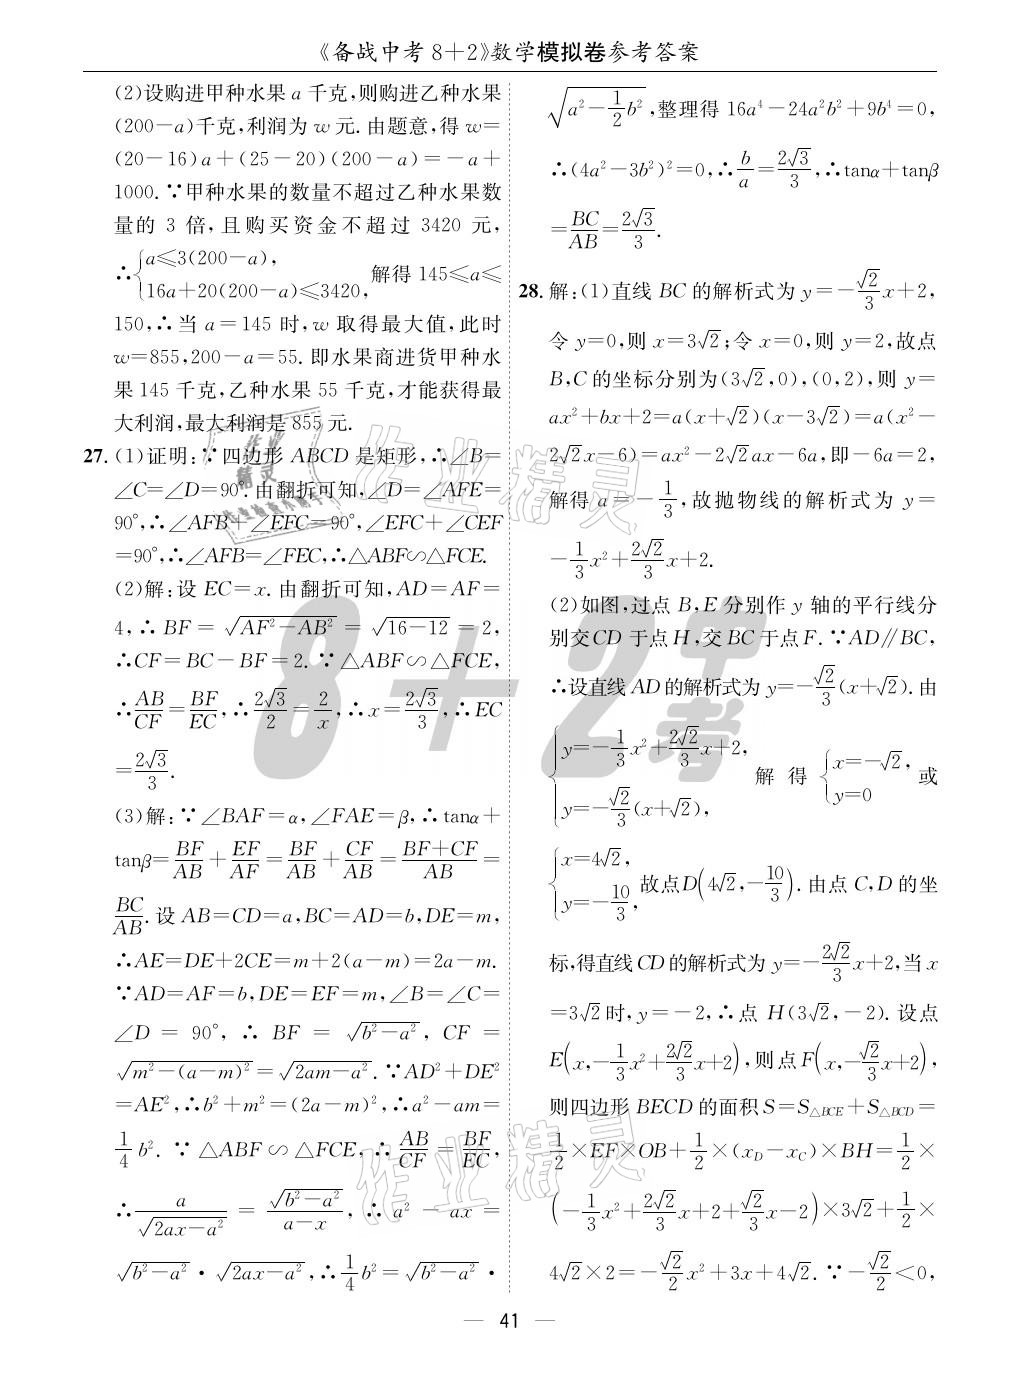 《备战中考 8＋2》数学模拟卷参考答案
(2)设购进甲种水果 a 千克,则购进乙种水果
(200－a)千克,利润为 w 元. 由题意,得 w＝
(20－16)a＋(25－20)(200－a)＝－a＋
1000. ∵甲种水果的数量不超过乙种水果数
量的 3 倍, 且购买资金不超过 3420 元,
∴{a≤3(200－a), 16a＋20(200－a)≤3420, 解得 145≤a≤
150,∴当 a＝145 时,w 取得最大值,此时
w＝855,200－a＝55. 即水果商进货甲种水
果 145 千克,乙种水果 55 千克,才能获得最
大利润,最大利润是 855 元.
27. (1)证明:∵四边形 ABCD 是矩形,∴∠B＝
∠C＝∠D＝90°. 由翻折可知,∠D＝∠AFE＝
90°,∴∠AFB＋∠EFC＝90°,∠EFC＋∠CEF
＝90°,∴∠AFB＝∠FEC,∴△ABF∽△FCE.
(2)解:设 EC＝x. 由翻折可知,AD＝AF＝
4,∴BF＝√(AF²－AB²)＝√(16－12)＝2,
∴CF＝BC－BF＝2. ∵△ABF∽△FCE,
∴AB/CF＝BF/EC,∴2√3/2＝2/x,∴x＝2√3/3,∴EC
＝2√3/3.
(3)解:∵∠BAF＝α,∠FAE＝β,∴tanα＋
tanβ＝BF/AB＋EF/AF＝BF/AB＋CF/AB＝(BF＋CF)/AB＝
BC/AB. 设 AB＝CD＝a,BC＝AD＝b,DE＝m,
∴AE＝DE＋2CE＝m＋2(a－m)＝2a－m.
∵AD＝AF＝b,DE＝EF＝m,∠B＝∠C＝
∠D＝90°,∴BF＝√(b²－a²),CF＝
√(m²－(a－m)²)＝√(2am－a²). ∵AD²＋DE²
＝AE²,∴b²＋m²＝(2a－m)²,∴a²－am＝
1/4 b². ∵△ABF∽△FCE,∴AB/CF＝BF/EC,
∴a/√(2ax－a²)＝√(b²－a²)/(a－x),∴a²－ax＝
√(b²－a²)·√(2ax－a²),∴1/4 b²＝√(b²－a²)·
√(a²－1/2 b²),整理得 16a⁴－24a²b²＋9b⁴＝0,
∴(4a²－3b²)²＝0,∴b/a＝2√3/3,∴tanα＋tanβ
＝BC/AB＝2√3/3.
28. 解:(1)直线 BC 的解析式为 y＝－√2/3 x＋2,
令 y＝0,则 x＝3√2;令 x＝0,则 y＝2,故点
B,C 的坐标分别为(3√2,0),(0,2),则 y＝
ax²＋bx＋2＝a(x＋√2)(x－3√2)＝a(x²－
2√2x－6)＝ax²－2√2ax－6a,即－6a＝2,
解得 a＝－1/3,故抛物线的解析式为 y＝
－1/3 x²＋2√2/3 x＋2.
(2)如图,过点 B,E 分别作 y 轴的平行线分
别交CD 于点H,交BC于点F. ∵AD∥BC,
∴设直线 AD 的解析式为 y＝－√2/3(x＋√2). 由
{y＝－1/3 x²＋2√2/3 x＋2, y＝－√2/3(x＋√2), 解得 {x＝－√2, y＝0 或
{x＝4√2, y＝－10/3, 故点D(4√2,－10/3). 由点 C,D 的坐
标,得直线CD的解析式为 y＝－2√2/3 x＋2,当 x
＝3√2时,y＝－2,∴点 H(3√2,－2). 设点
E(x,－1/3 x²＋2√2/3 x＋2),则点F(x,－√2/3 x＋2),
则四边形 BECD 的面积 S＝S△BCE＋S△BCD＝
1/2×EF×OB＋1/2×(xD－xC)×BH＝1/2×
(－1/3 x²＋2√2/3 x＋2＋√2/3 x－2)×3√2＋1/2×
4√2×2＝－√2/2 x²＋3x＋4√2. ∵－√2/2＜0,
作业精灵
作业精灵
作业精灵
8＋2中考
— 41 —